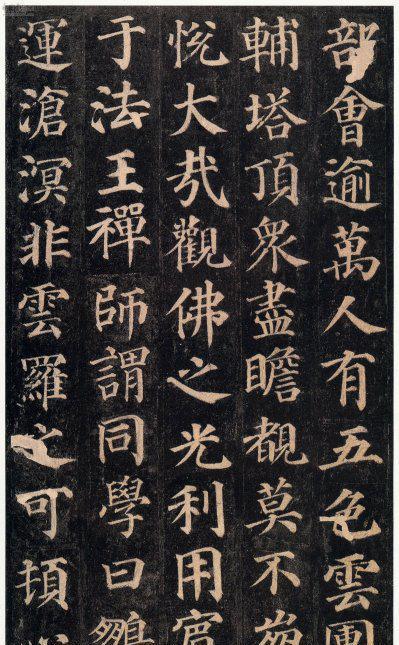 部會逾萬人有五色雲團
輔塔頂眾盡瞻覩莫不崩
悅大哉觀佛之光利用賓
于法王禪師謂同學曰鵬
運滄溟非雲羅之可頓